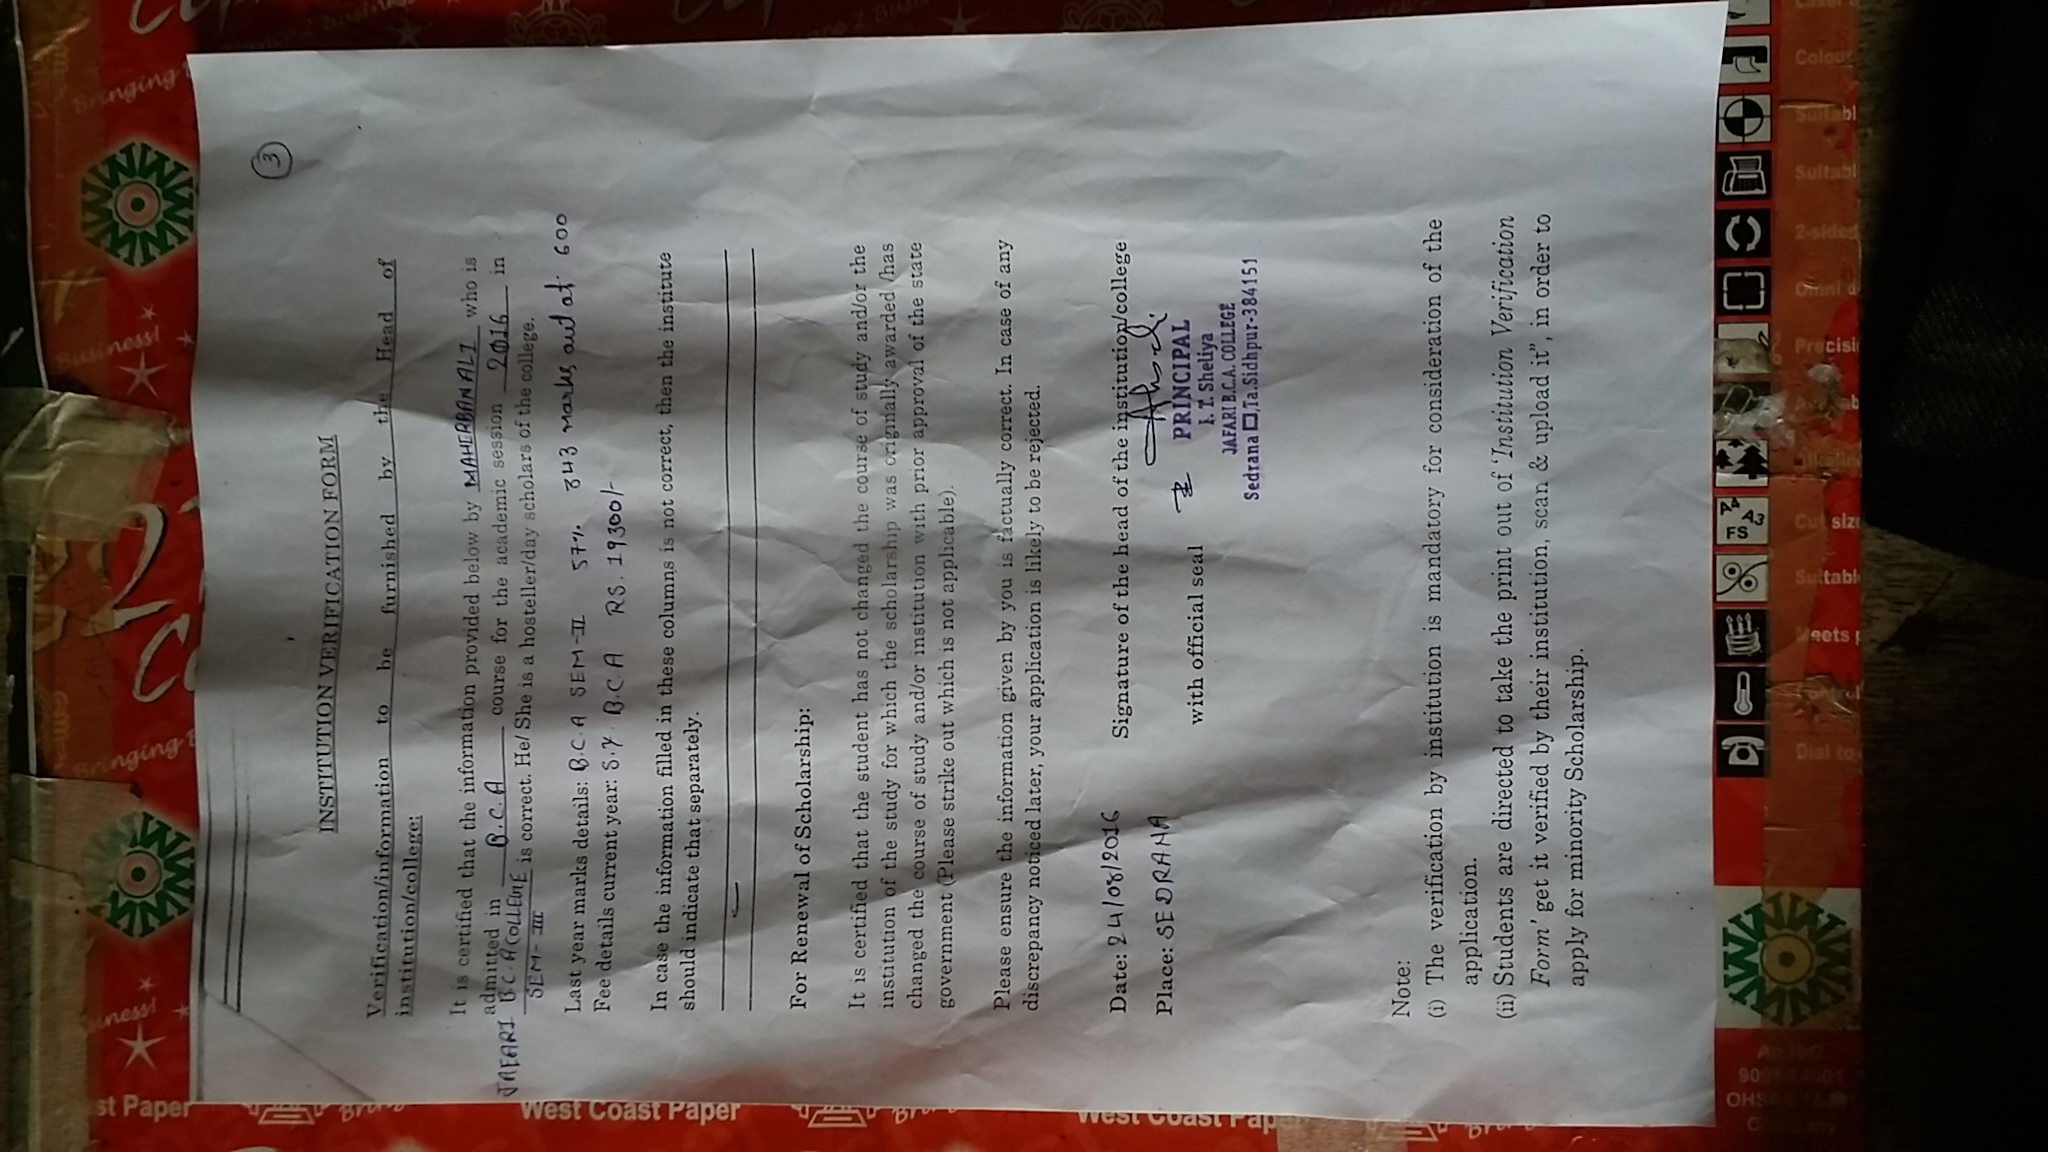 3
INSTITUTION VERIFICATION FORM
Verification/information to be furnished by the Head of
institution/college:
It is certified that the information provided below by MAHERBAN ALI who is
admitted in B.C.A course for the academic session 2016 in
JAFARI B.C.A COLLEGE is correct. He/ She is a hosteller/day scholars of the college.
SEM-III
Last year marks details: B.C.A SEM-II 57% 343 marks out of 600
Fee details current year: S.Y. B.C.A RS. 19300/-
In case the information filled in these columns is not correct, then the institute
should indicate that separately.
For Renewal of Scholarship:
It is certified that the student has not changed the course of study and/or the
institution of the study for which the scholarship was originally awarded /has
changed the course of study and/or institution with prior approval of the state
government (Please strike out which is not applicable).
Please ensure the information given by you is factually correct. In case of any
discrepancy noticed later, your application is likely to be rejected.
Date: 24/08/2016 Signature of the head of the institution/college
Place: SEDRANA
with official seal
PRINCIPAL
I. T. Sheliya
JAFARI B.C.A. COLLEGE
Sedrana ,Ta.Sidhpur-384151
Note:
(i) The verification by institution is mandatory for consideration of the
application.
(ii) Students are directed to take the print out of 'Institution Verification
Form' get it verified by their institution, scan & upload it", in order to
apply for minority Scholarship.
West Coast Paper
West Coast Paper
AA A3
FS